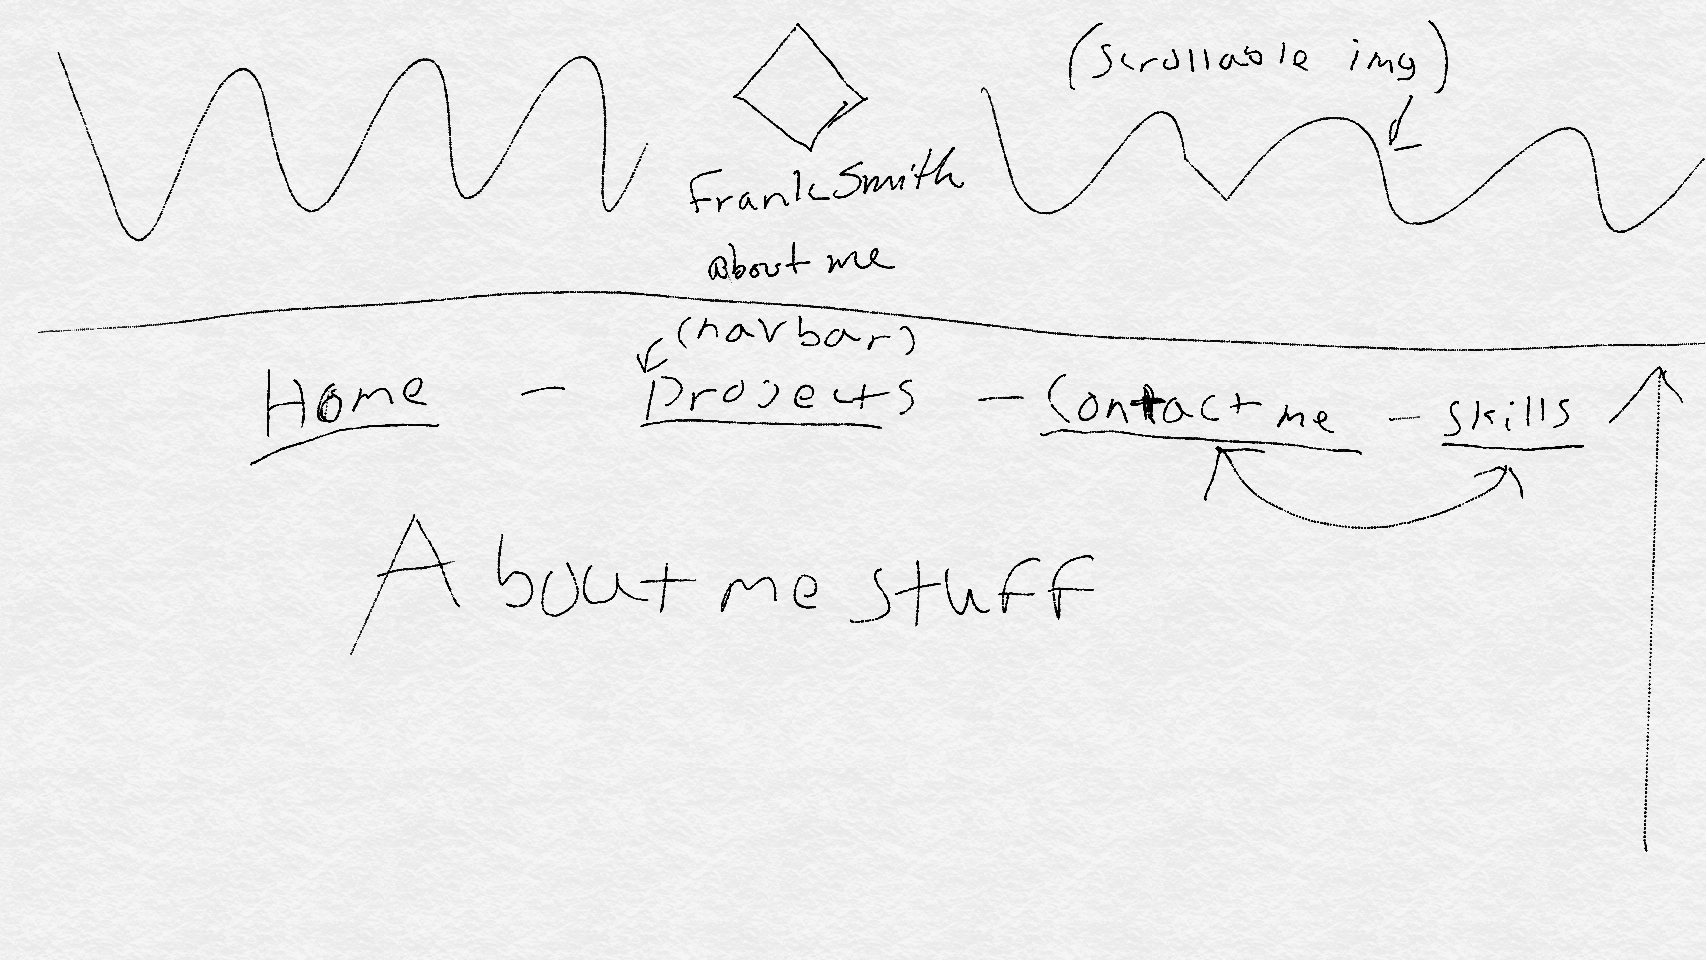 (scrollable img)
Frank Smith
about me
(navbar)
Home - Projects - Contact me - skills
About me stuff